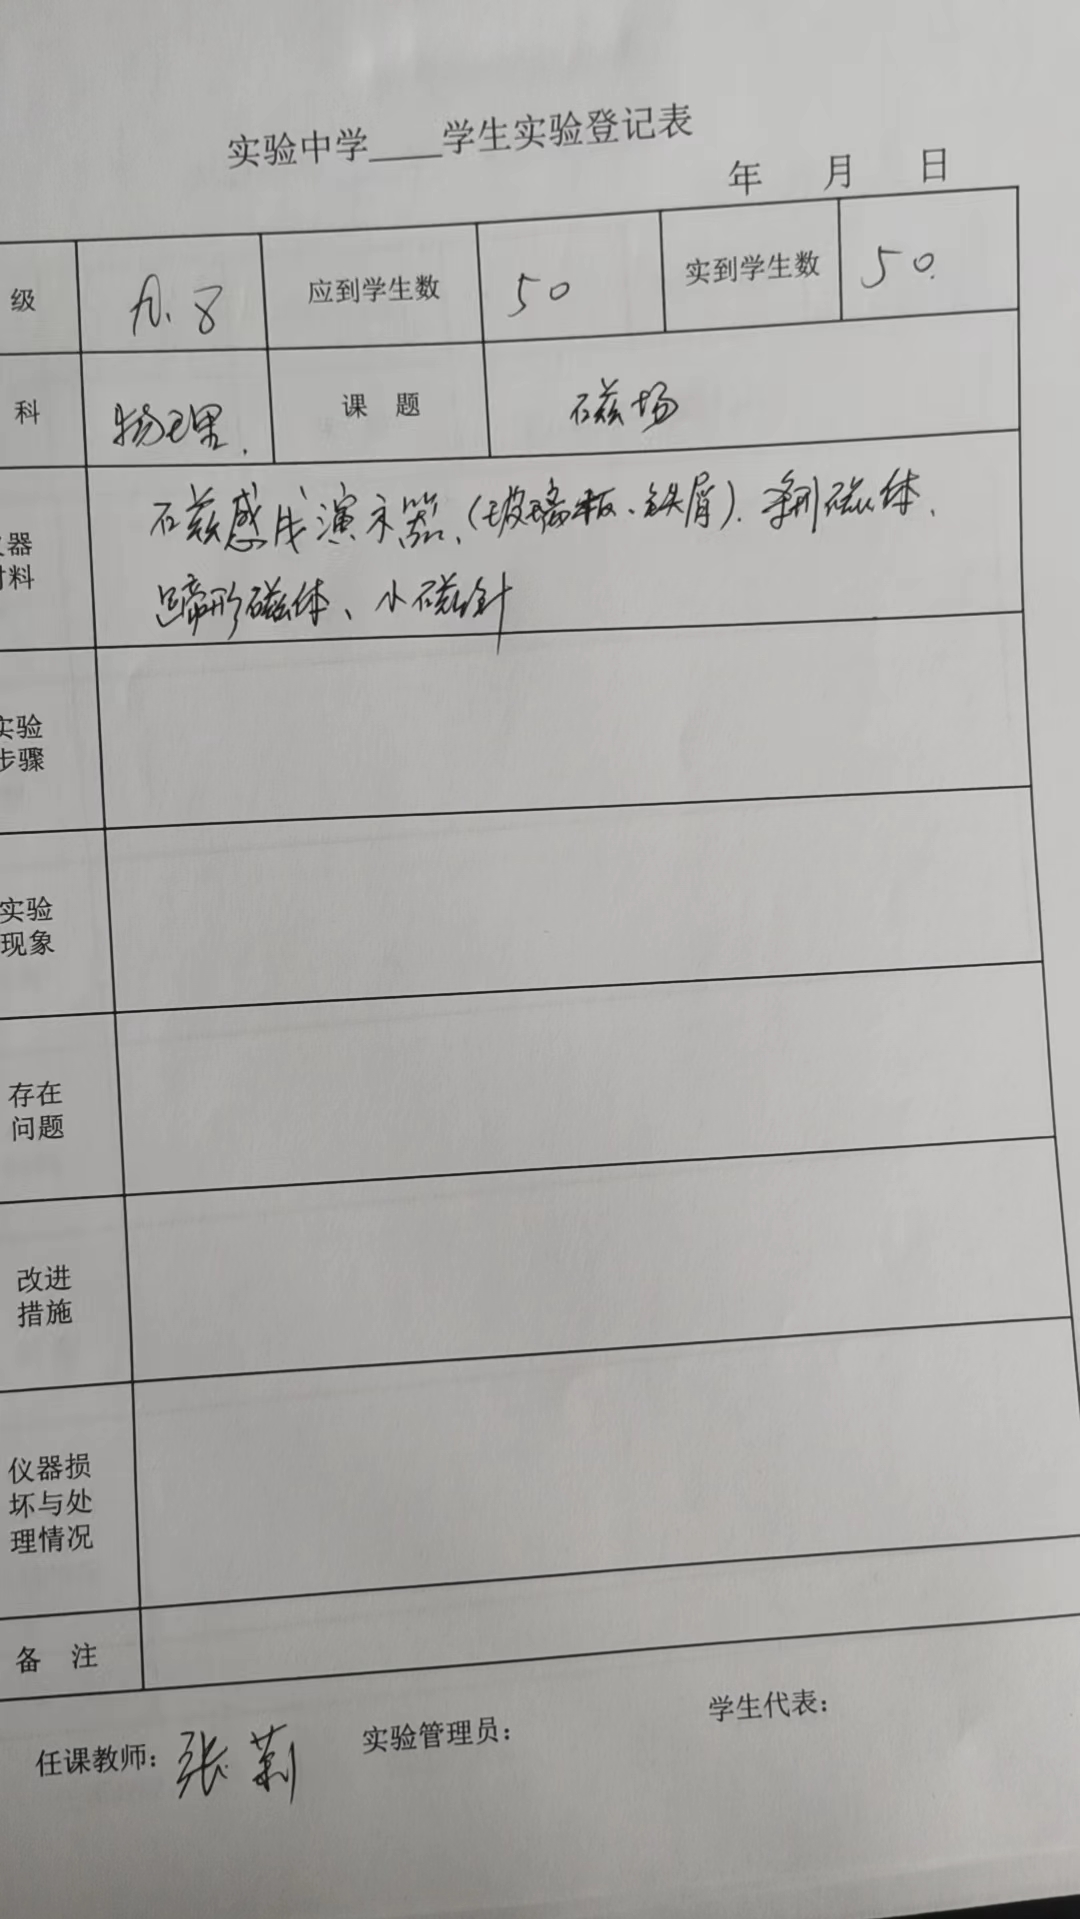 实验中学____学生实验登记表
年 月 日
级 九.8 应到学生数 50 实到学生数 50.
科 物理. 课 题 磁场
器
料
磁感线演示器、(玻璃板、铁屑).条形磁体、
蹄形磁体、小磁针
实验
步骤
实验
现象
存在
问题
改进
措施
仪器损
坏与处
理情况
备 注
任课教师: 张莉 实验管理员: 学生代表: